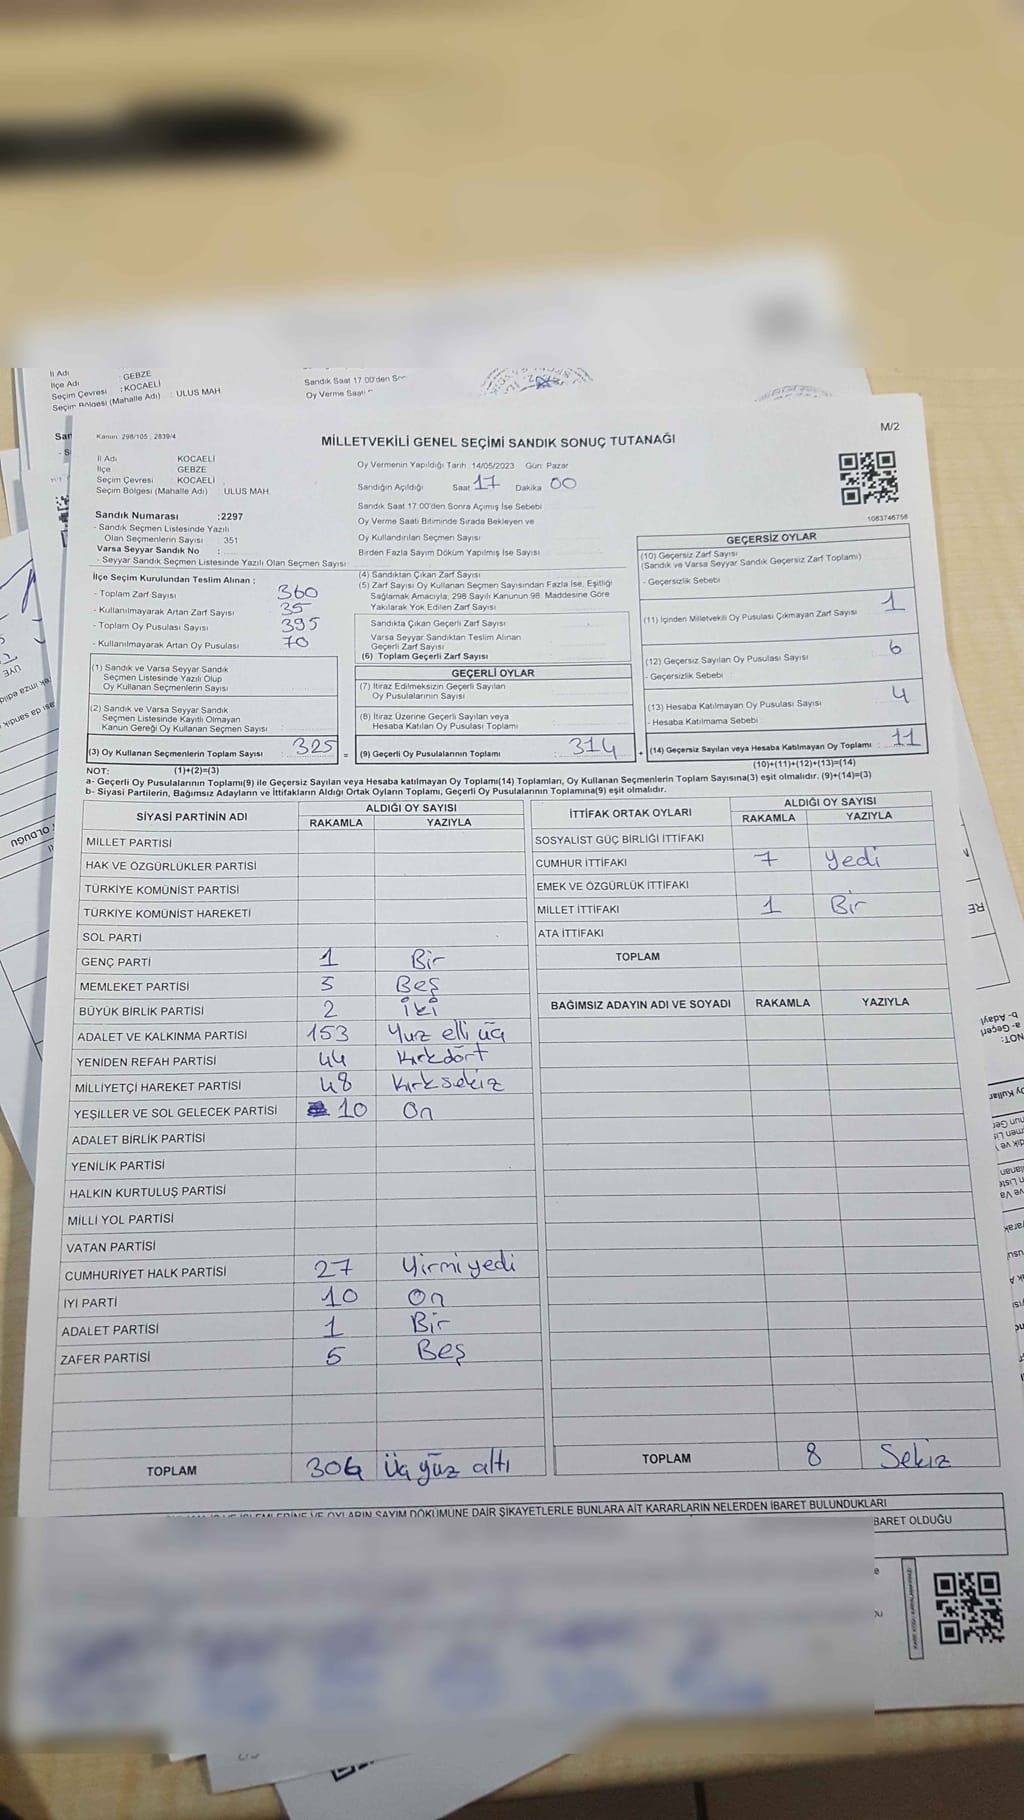 İl Adı : GEBZE
İlçe Adı : KOCAELİ
Seçim Çevresi
Seçim Bölgesi (Mahalle Adı) : ULUS MAH
Sandık Saat 17:00'den
Oy Verme Saati
Kanun: 298/105 ; 2839/4
MİLLETVEKİLİ GENEL SEÇİMİ SANDIK SONUÇ TUTANAĞI
M/2
İl Adı : KOCAELİ
İlçe : GEBZE
Seçim Çevresi : KOCAELİ
Seçim Bölgesi (Mahalle Adı) : ULUS MAH
Oy Vermenin Yapıldığı Tarih :14/05/2023 Gün: Pazar
Sandığın Açıldığı Saat 17 Dakika 00
Sandık Saat 17:00'den Sonra Açımış İse Sebebi
Oy Verme Saati Bitiminde Sırada Bekleyen ve
Oy Kullandırılan Seçmen Sayısı
Birden Fazla Sayım Döküm Yapılmış İse Sayısı
1083746758
Sandık Numarası :2297
- Sandık Seçmen Listesinde Yazılı
Olan Seçmenlerin Sayısı : 351
Varsa Seyyar Sandık No :
- Seyyar Sandık Seçmen Listesinde Yazılı Olan Seçmen Sayısı
İlçe Seçim Kurulundan Teslim Alınan :
- Toplam Zarf Sayısı 360
- Kullanılmayarak Artan Zarf Sayısı 35
- Toplam Oy Pusulası Sayısı 395
- Kullanılmayarak Artan Oy Pusulası 70
(1) Sandık ve Varsa Seyyar Sandık
Seçmen Listesinde Yazılı Olup
Oy Kullanan Seçmenlerin Sayısı
(2) Sandık ve Varsa Seyyar Sandık
Seçmen Listesinde Kayıtlı Olmayan
Kanun Gereği Oy Kullanan Seçmen Sayısı
(3) Oy Kullanan Seçmenlerin Toplam Sayısı : 325 =
(4) Sandıktan Çıkan Zarf Sayısı
(5) Zarf Sayısı Oy Kullanan Seçmen Sayısından Fazla İse, Eşitliği
Sağlamak Amacıyla, 298 Sayılı Kanunun 98. Maddesine Göre
Yakılarak Yok Edilen Zarf Sayısı
Sandıkta Çıkan Geçerli Zarf Sayısı
Varsa Seyyar Sandıktan Teslim Alınan
Geçerli Zarf Sayısı
(6) Toplam Geçerli Zarf Sayısı
GEÇERLİ OYLAR
(7) İtiraz Edilmeksizin Geçerli Sayılan
Oy Pusulalarının Sayısı
(8) İtiraz Üzerine Geçerli Sayılan veya
Hesaba Katılan Oy Pusulası Toplamı
(9) Geçerli Oy Pusulalarının Toplamı : 314 +
GEÇERSİZ OYLAR
(10) Geçersiz Zarf Sayısı
(Sandık ve Varsa Seyyar Sandık Geçersiz Zarf Toplamı)
- Geçersizlik Sebebi
(11) İçinden Milletvekili Oy Pusulası Çıkmayan Zarf Sayısı 1
(12) Geçersiz Sayılan Oy Pusulası Sayısı 6
- Geçersizlik Sebebi
(13) Hesaba Katılmayan Oy Pusulası Sayısı 4
- Hesaba Katılmama Sebebi
(14) Geçersiz Sayılan veya Hesaba Katılmayan Oy Toplamı : 11
NOT: (1)+(2)=(3) (10)+(11)+(12)+(13)=(14)
a- Geçerli Oy Pusulalarının Toplamı(9) ile Geçersiz Sayılan veya Hesaba katılmayan Oy Toplamı(14) Toplamları, Oy Kullanan Seçmenlerin Toplam Sayısına(3) eşit olmalıdır. (9)+(14)=(3)
b- Siyasi Partilerin, Bağımsız Adayların ve İttifakların Aldığı Ortak Oyların Toplamı, Geçerli Oy Pusulalarının Toplamına(9) eşit olmalıdır.
SİYASİ PARTİNİN ADI ALDIĞI OY SAYISI
RAKAMLA YAZIYLA
MİLLET PARTİSİ
HAK VE ÖZGÜRLÜKLER PARTİSİ
TÜRKİYE KOMÜNİST PARTİSİ
TÜRKİYE KOMÜNİST HAREKETİ
SOL PARTİ
GENÇ PARTİ 1 Bir
MEMLEKET PARTİSİ 5 Beş
BÜYÜK BİRLİK PARTİSİ 2 İki
ADALET VE KALKINMA PARTİSİ 153 Yüz elli üç
YENİDEN REFAH PARTİSİ 44 Kırkdört
MİLLİYETÇİ HAREKET PARTİSİ 48 Kırksekiz
YEŞİLLER VE SOL GELECEK PARTİSİ 10 On
ADALET BİRLİK PARTİSİ
YENİLİK PARTİSİ
HALKIN KURTULUŞ PARTİSİ
MİLLİ YOL PARTİSİ
VATAN PARTİSİ
CUMHURİYET HALK PARTİSİ 27 Yirmi yedi
İYİ PARTİ 10 On
ADALET PARTİSİ 1 Bir
ZAFER PARTİSİ 5 Beş
TOPLAM 306 Üç yüz altı
İTTİFAK ORTAK OYLARI ALDIĞI OY SAYISI
RAKAMLA YAZIYLA
SOSYALİST GÜÇ BİRLİĞİ İTTİFAKI
CUMHUR İTTİFAKI 7 Yedi
EMEK VE ÖZGÜRLÜK İTTİFAKI
MİLLET İTTİFAKI 1 Bir
ATA İTTİFAKI
TOPLAM
BAĞIMSIZ ADAYIN ADI VE SOYADI RAKAMLA YAZIYLA
TOPLAM 8 Sekiz
OYLARIN SAYIM DÖKÜMÜNE DAİR ŞİKAYETLERLE BUNLARA AİT KARARLARIN NELERDEN İBARET BULUNDUKLARI
BARET OLDUĞU